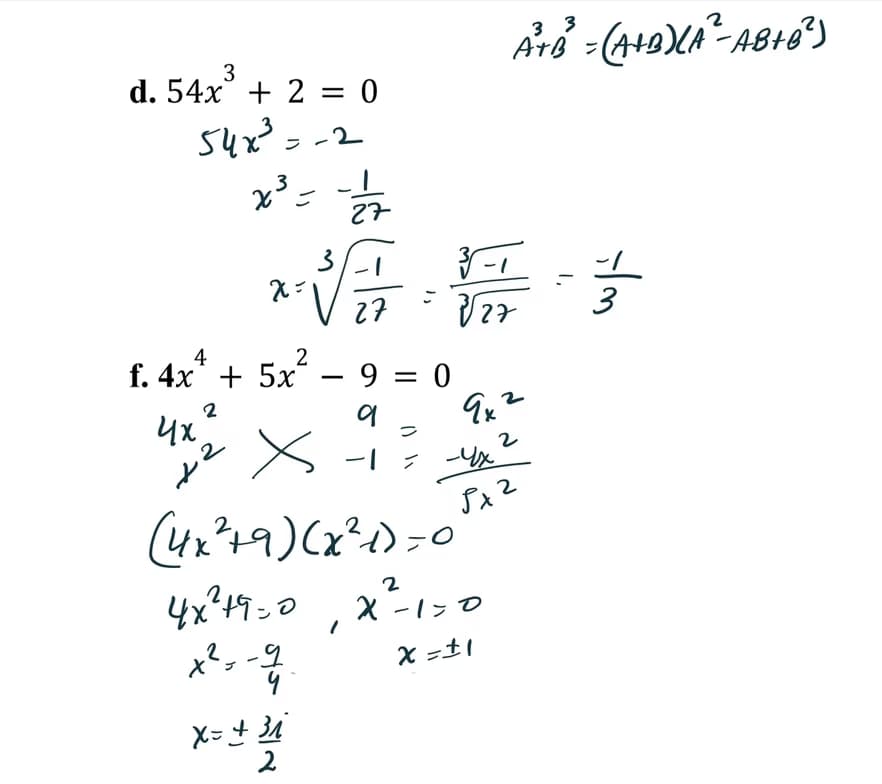 A³+B³ = (A+B)(A²-AB+B²)
d. 54x³ + 2 = 0
54x³ = -2
x³ = -1/27
x = ∛(-1/27) = ∛-1/∛27 = -1/3
f. 4x⁴ + 5x² − 9 = 0
4x² 9 = 9x²
x² -1 = -4x²
5x²
(4x²+9)(x²-1)=0
4x²+9=0 , x²-1=0
x²=-9/4 x=±1
x=± 3i/2